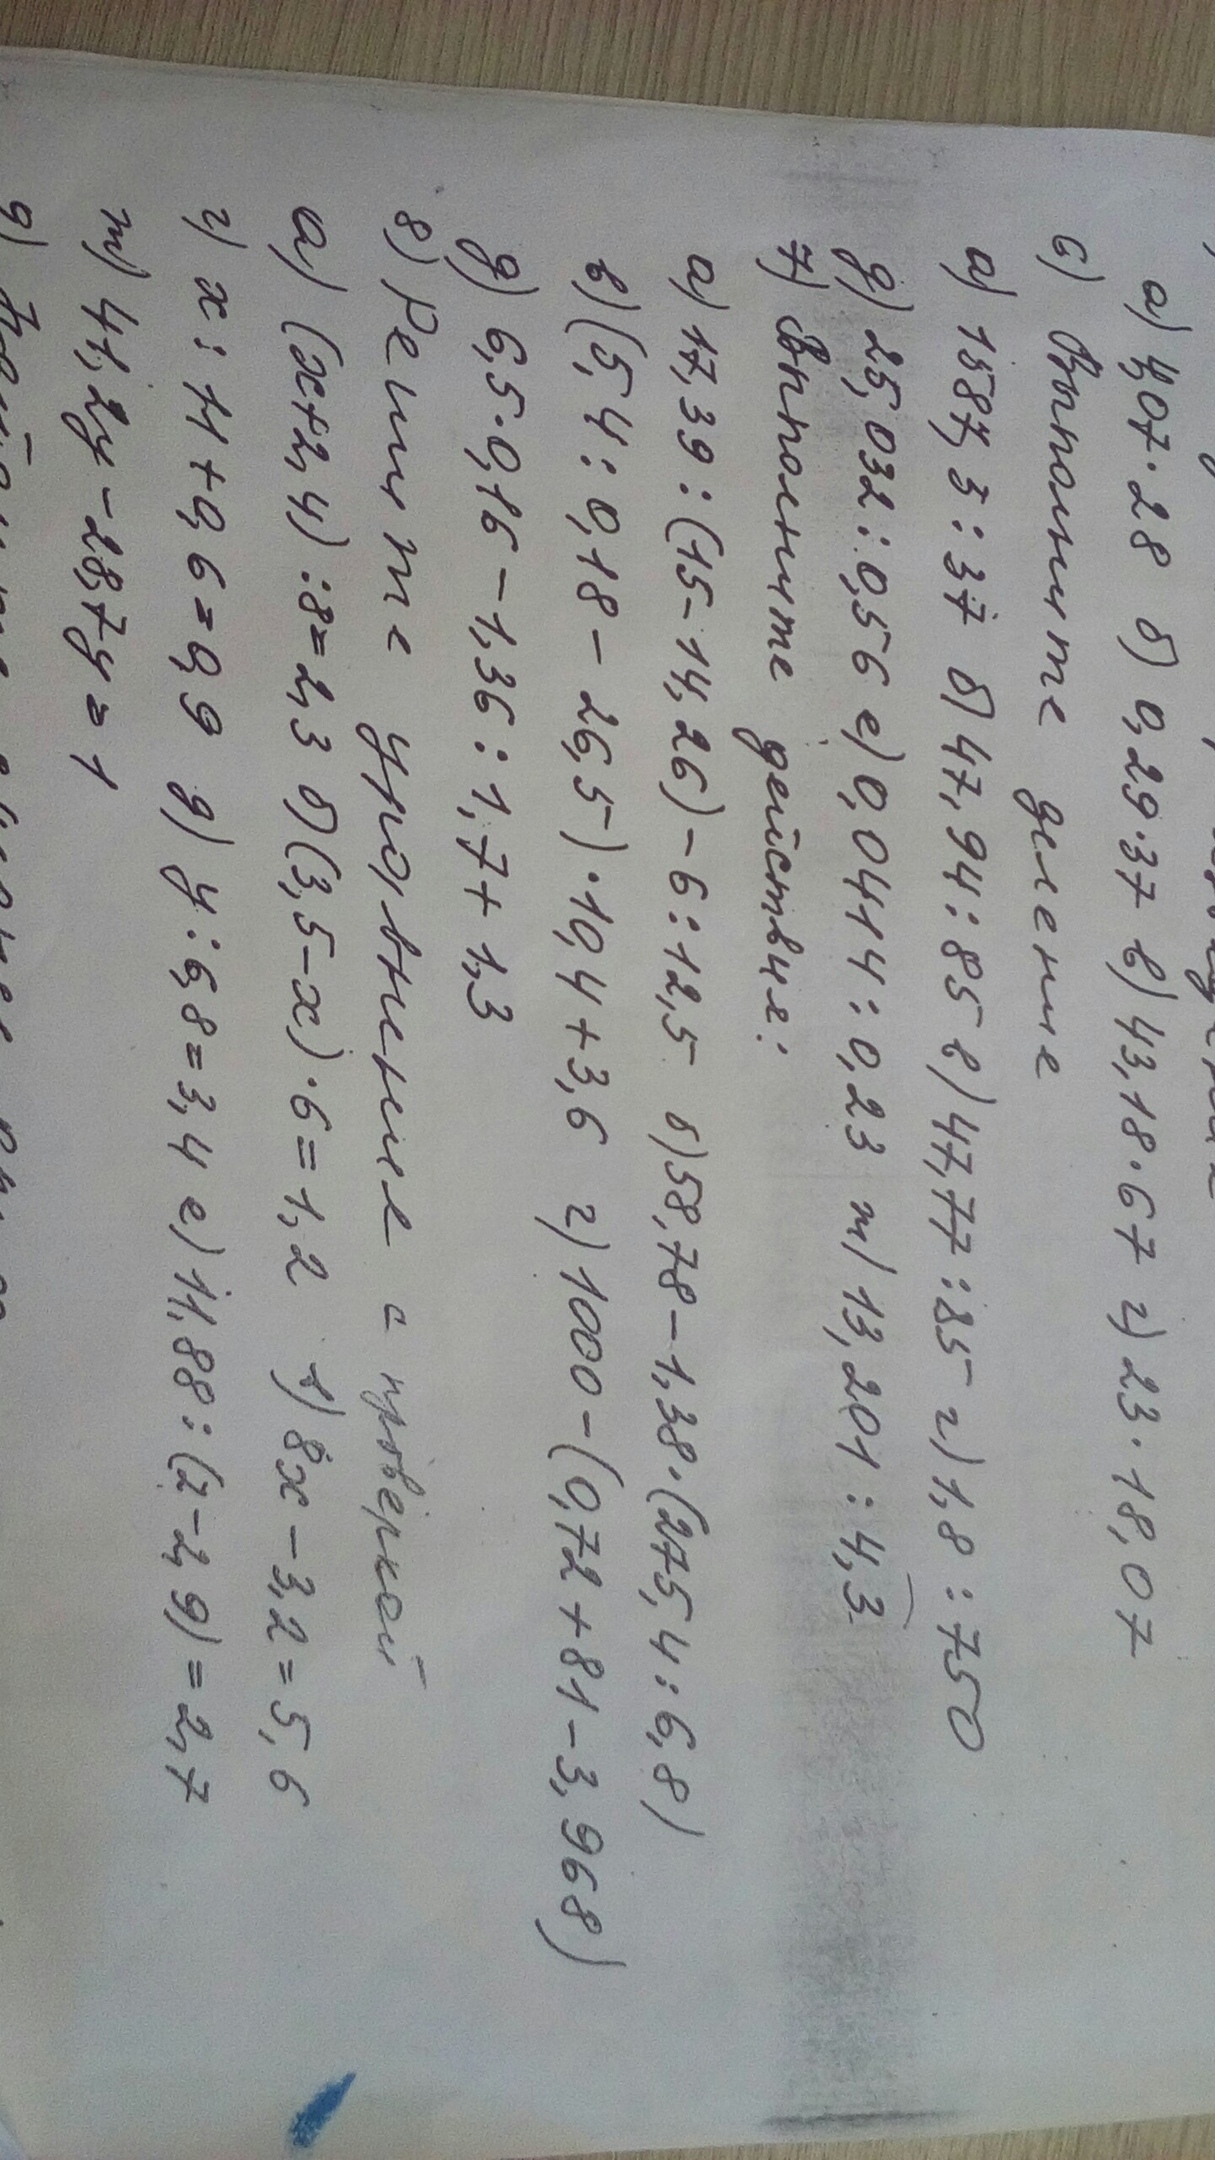 а) 4,07·28 б) 0,29·37 в) 43,18·67 г) 23·18,07
6) Выполните деление
а) 1587,3:37 б) 47,94:85 в) 47,77:85 г) 1,8:750
д) 25,032:0,56 е) 0,04144:0,23 т) 13,201:4,3
7) Выполните действия:
а) 17,39:(15-14,26)-6:12,5 б) 58,78-1,38·(275,4:6,8)
в) (5,4:0,18-26,5)·10,4+3,6 г) 1000-(0,72+81-3,968)
д) 6,5·0,16-1,36:1,7+1,3
8) Решите уравнение с проверкой
а) (х+2,4):8=2,3 б) (3,5-х)·6=1,2 в) 8х-3,2=5,6
г) х:11+0,6=0,9 д) у:6,8=3,4 е) 11,88:(z-2,9)=2,7
т) 41,2у-28,7у=1
9)